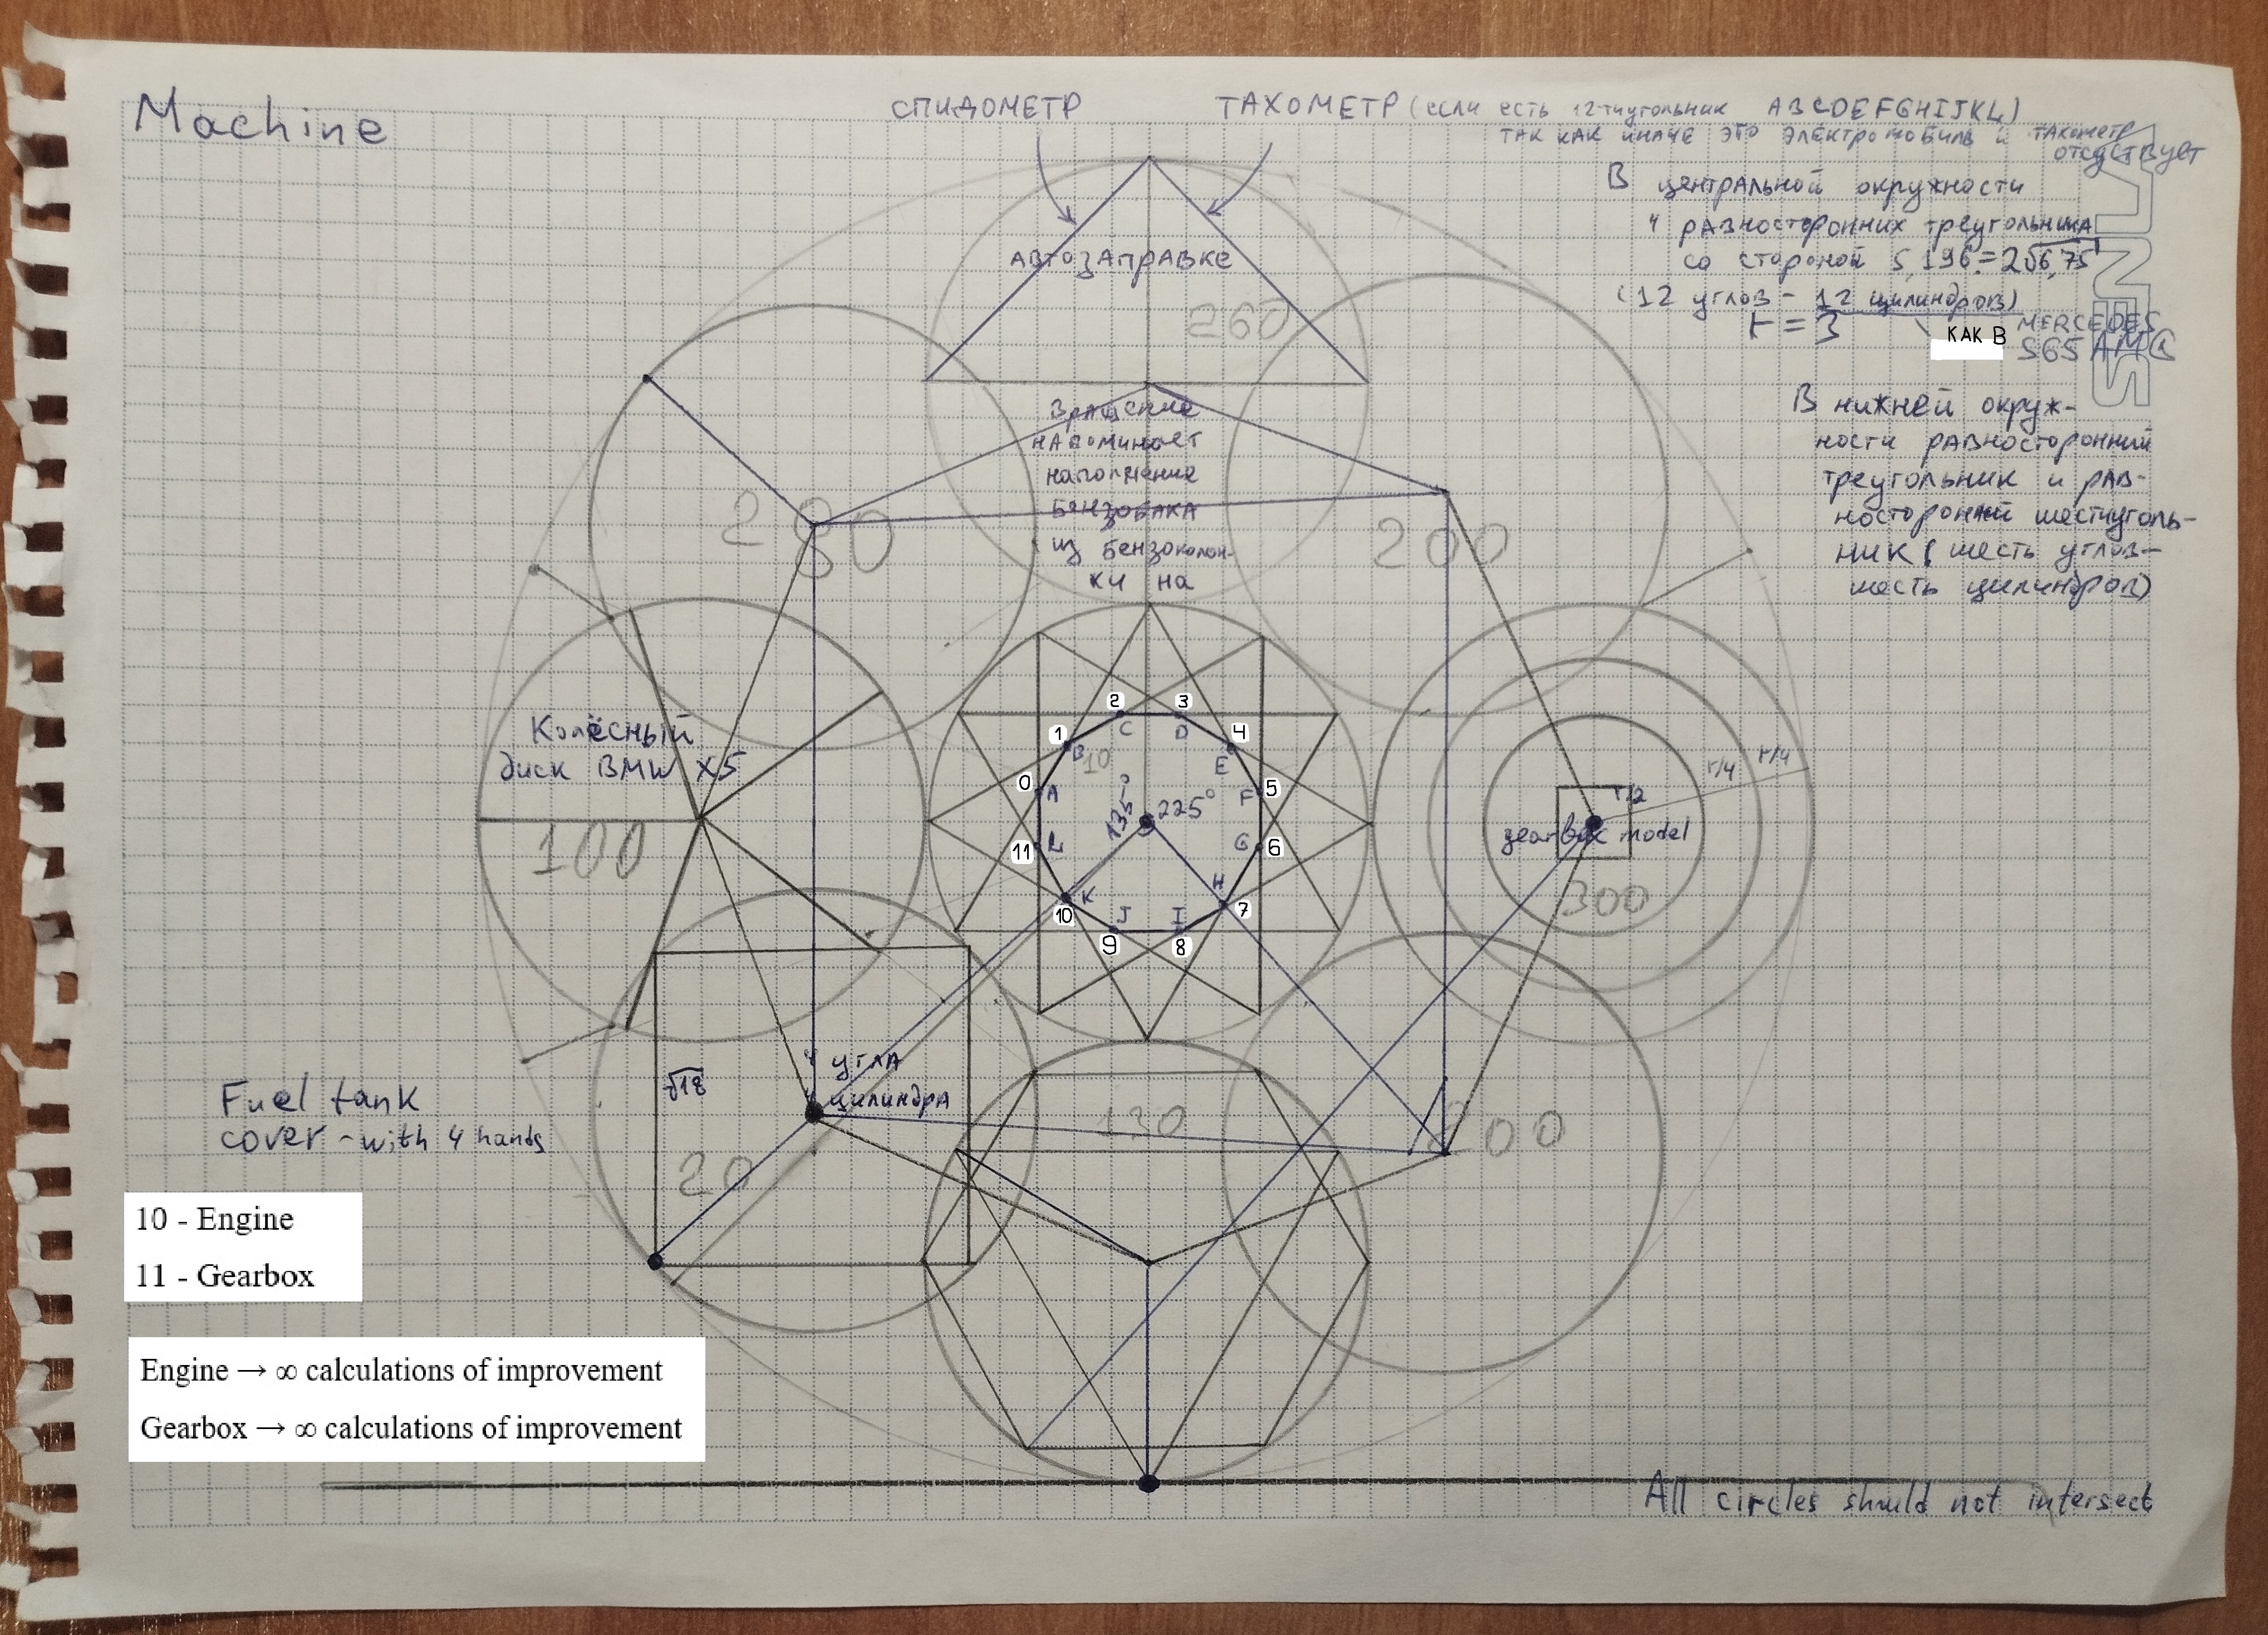 Machine
СПИДОМЕТР
ТАХОМЕТР (если есть 12-тиугольник ABCDEFGHIJKL)
ТАК КАК ИНАЧЕ ЭТО ЭЛЕКТРОМОБИЛЬ и ТАХОМЕТР
отсутствует
В центральной окружности
4 равносторонних треугольника
со стороной 5,196=2√6,75
(12 углов - 12 цилиндров)
r = 3
КАК В
MERCEDES
S65 AMG
В нижней окруж-
ности равносторонний
треугольник и рав-
носторонний шестиуголь-
ник (шесть углов-
шесть цилиндров)
АВТОЗАПРАВКЕ
260
Вращение
напоминает
наполнение
БЕНЗОБАКА
из бензоколон-
ки на
280
200
Колёсный
диск BMW X5
100
2
3
1
4
C
D
B
10
E
0
A
F
5
135°
225°
11
L
G
6
K
H
10
J
I
7
9
8
r/4
r/4
r/2
gearbox model
300
√18
4 угла
цилиндра
20
130
200
Fuel tank
cover - with 4 hands
10 - Engine
11 - Gearbox
Engine → ∞ calculations of improvement
Gearbox → ∞ calculations of improvement
All circles should not intersect